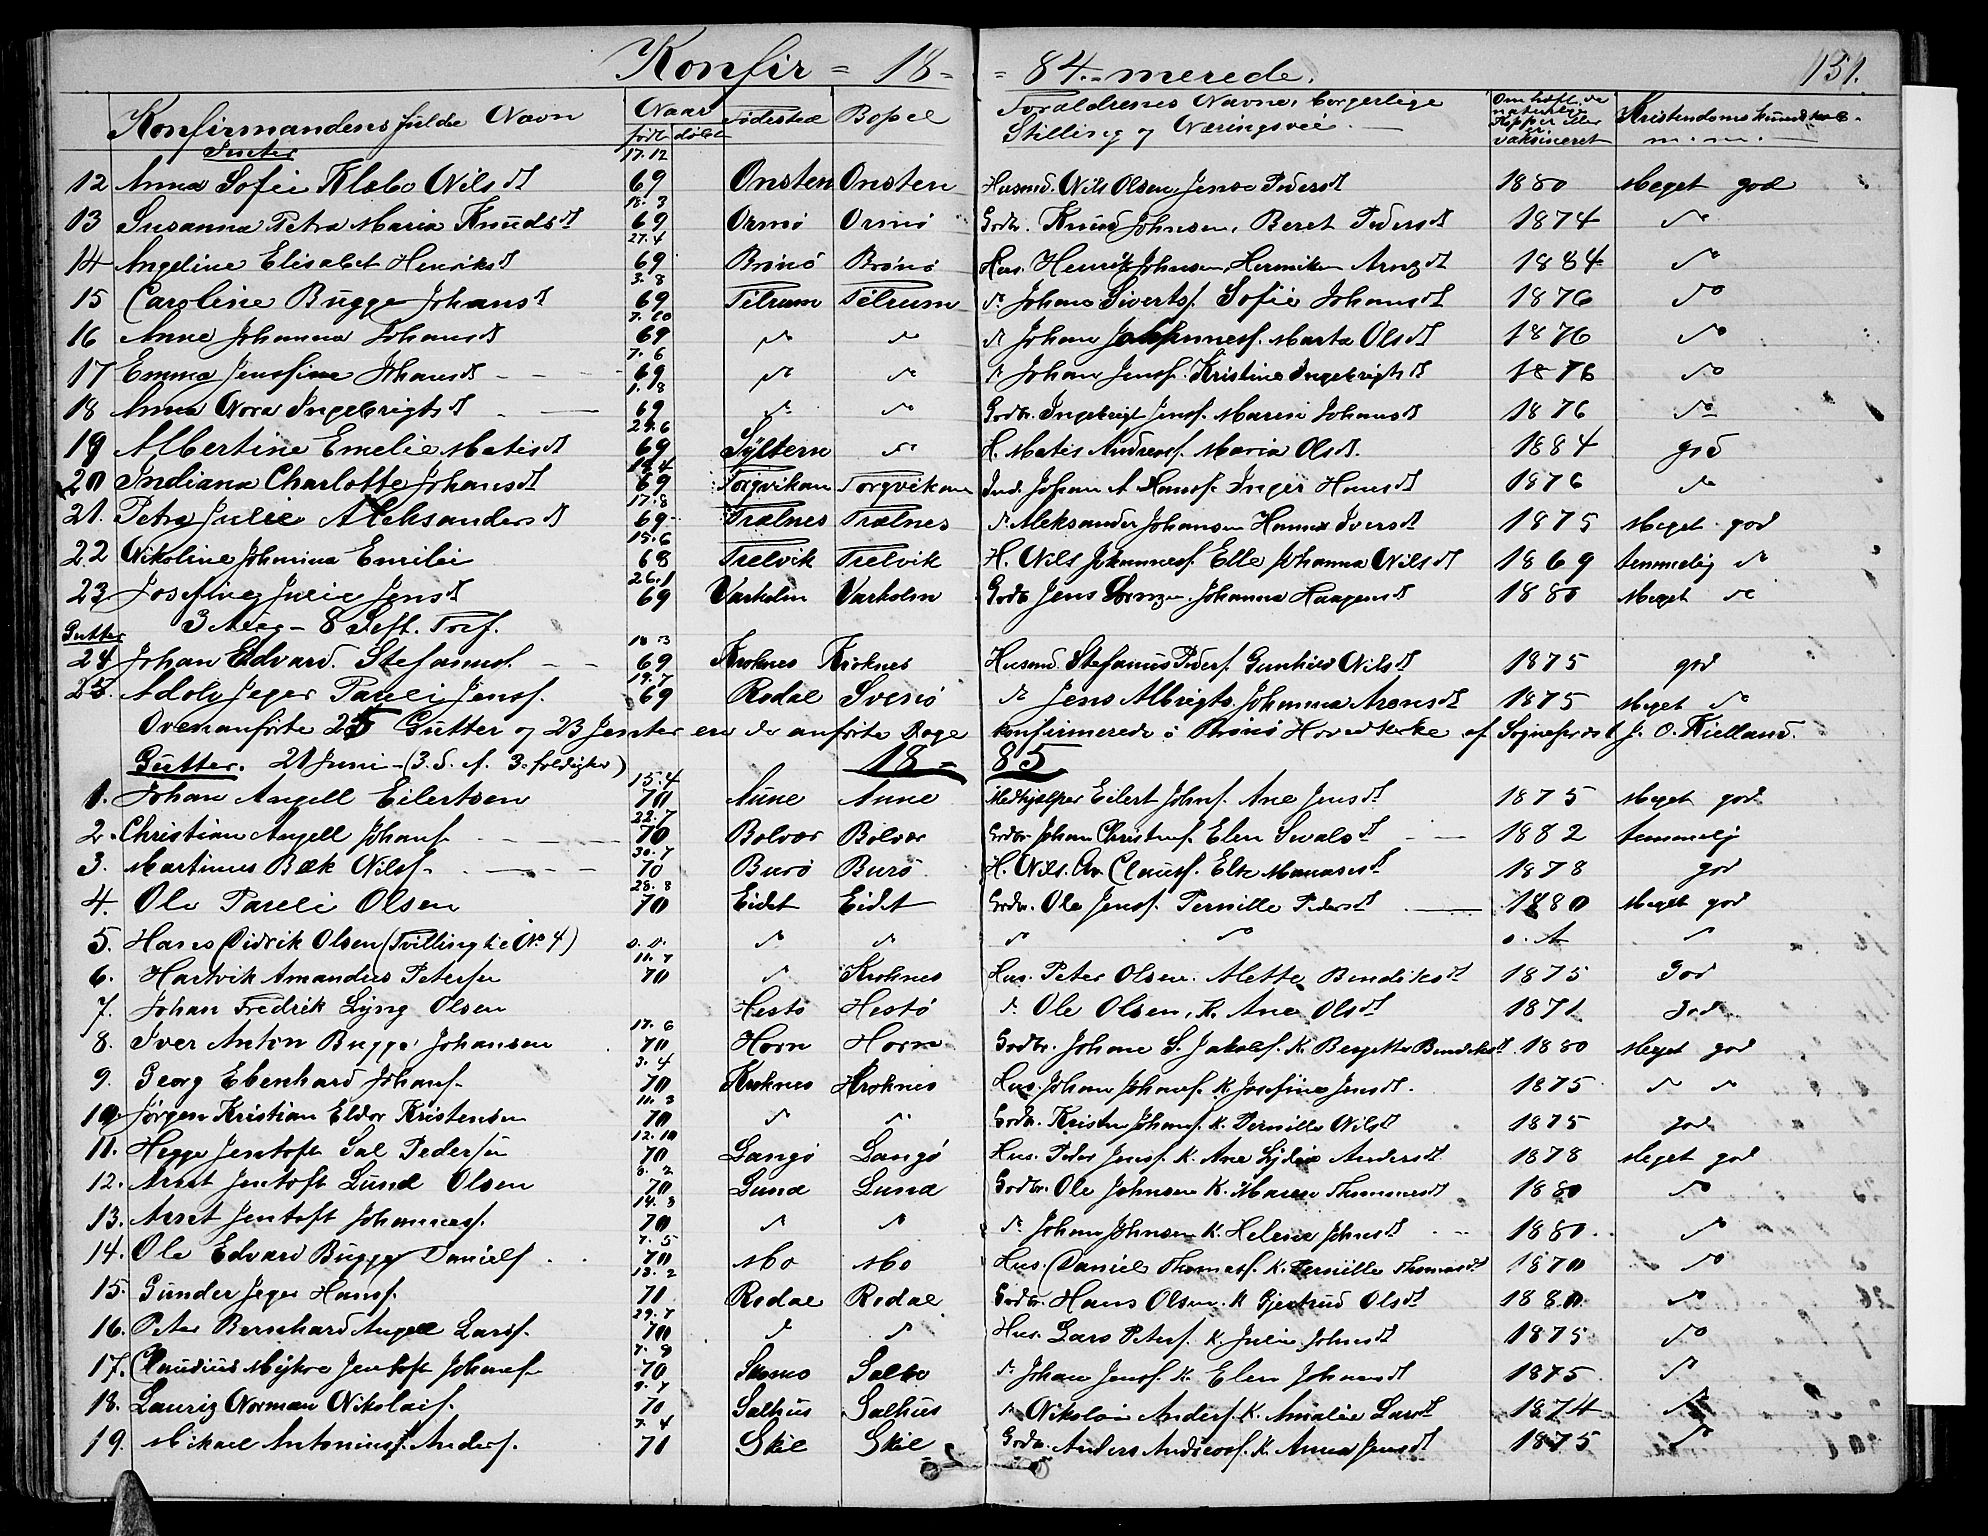 Konfir = 18 = = 84. = merede. 151.
Konfirmandens fulde Navn Naar født døbt Fødested Bopel Foraldrenes Navne, borgerlige Stilling og Næringsvei. — Kristendoms kundskab m. m. vaksineret
Jenter
12 Anna Sofie Klebo Nilsdt 17.12 69 Onsten Onsten Husmd. Nils Olsen, Pedersdt 1880 Meget god
13 Susanna Petra Maria Knudsdt 18.3 69 Ormø Ormø Gdbr. Knud Johnsen, Beret Pedersdt 1874 do
14 Angeline Elisabet Henriksdt 27.4 69 Brønø Brønø Hus. Henrik Johnsen, 1884 do
15 Caroline Bugge Johansdt 3.8 69 Tilrum Tilrum do Johan Sivertsf. Sofie Johansdt 1876 do
16 Anne Johanna Johansdt 7.10 69 do do do Johan Johannesf. Marta Olsdt 1876 do
17 Emma Jensfine Johansdt 7.6 69 do do do Johan Jensf. Kristine Ingebrigtsdt 1876 do
18 Anna Nora Ingebrigtsdt 1.8 69 do do Gdbr. Ingebrigt Jensf. Maren Johansdt 1876 do
19 Albertine Emelie Matisdt 29.6 69 Syltern do H. Matis Andreasf. Maria Olsdt. 1884 god
20 Indiana Charlotte Johansdt 19.4 69 Torgvikan Torgvikan Ind. Johan A Hansf. Inger Hansdt 1876 do
21. Petra Julie Aleksandersdt 17.8 69 Trælnes Trælnes do Aleksander Johansen Hanna Iversdt 1875 Meget god
22 Nikoline Johanna Emilie 15.6 68 Trelvik Trelvik H. Nils Johannesf. Elle Johanna Nilsdt 1869 temmelig do
23 Josefine Julie Jensdt 26.1 69 Varholm Varholm Gdbr Jens Johanna Haagensdt 1880 Meget do
3 Aug - 8 Seft. Tref.
Gutter
24 Johan Edvard. Stefanusf. 18.3 69 Kroknes Kroknes Husmd. Stefanus Pedersf. Gunhild Nilsdt 1875 god
25. Adolv Jeger Pareli Jensf. 19.7 69 Rodal Svenø do Jens Albrigts. Johanna Aronsdt 1875 Meget do
Ovenanførte 25 Gutter og 23 Jenter ere de anførte Dage konfirmerede i Brønø Hovedkirke af Sogneprest J. O. Kielland.
Gutter. 21 Juni - (3. S. ef. 3 foldighed) 18 = 85
1. Johan Angell Eilertsen 15.4 70 Aune Aune Medhjælper Eilert Johnsf. Ane Jensdt 1875 Meget god
2. Christian Angell Johansf. 22.7 70 Bolvær Bolvær Gdbr. Johan Christensf. Elen Evalsdt 1882 temmelig
3. Martinus Bæk Nilsf. 30.7 70 Burø Burø H. Nils. Clausf. Else Manasesdt 1878 god
4. Ole Pareli Olsen 28.8 70 Eidet Eidet Gdbr. Ole Jensf. Pernille Pedersdt 1880 Meget god
5. Hans Didrik Olsen (Tvilling til No 4) do do do do do
6. Hartvik Amandus Petersen 11.7 70 do Kroknes Hus. Peter Olsen. Alette Bendiksdt 1875 God
7. Johan Fredrik Lyng Olsen Hestø Hestø do Ole Olsen, K. Ane Olsdt 1871 God
8. Iver Anton Bugge Johansen 17.6 70 Horn Horn Gdbr. Johan S. Jakobsf. K. Bergitte Bendiksdt 1880 Meget god
9. Georg Ebenhard Johansf. 3.4 70 Kroknes Kroknes Hus. Johan Johansf. K. Josefine Jensdt. 1875 do do
10. Jørgen Kristian Eldor Kristensen 11.3 70 do do Gdbr. Kristen Johansf. K. Pernille Nilsdt 1875 god
11. Hegge Jentoft Sal Pedersen 12.10 70 Langø Langø Hus. Peder Jensf. K. Ane Lydia Andersdt 1878 Meget god
12. Arnt Jentoft Lund Olsen 3.2 70 Lund Lund Gdbr. Ole Johnsen K. Maren Thommesdt 1880 do
13. Arnt Jentoft Johannesf. 14.3 70 do do do Johan Johnsen K. Helena Johnsdt 1880. do
14. Ole Edvard Bugge Danielsf. 7.5 70 Mo Mo Hus. Daniel Thomasf. K. Pernille Thomasdt 1870 do
15. Gunder Jeger Hansf. 13.2 71 Rodal Rodal Gdbr. Hans Olsen. K Gjertrud Olsdt 1880. do
16. Peter Bernhard Angell Larsf. 29.7 70 do do Hus. Lars Petersf. K. Julie Johnsdt 1875 do
17. Claudius Mykre Jentoft Johansf. 7.9 70 Salbo do Johan Jensf. K. Elen Johansdt 1875. do
18. Lauriz Norman Nikolaisf. 9.7 70 Salhus Salhus do Nikolai Andersf. K. Amalie Larsdt 1874 do
19. Mikael Antonius Andersf. 7.4 71 Skil Skil Gdbr. Anders Andreasf. K. Anna Jensdt 1875 do